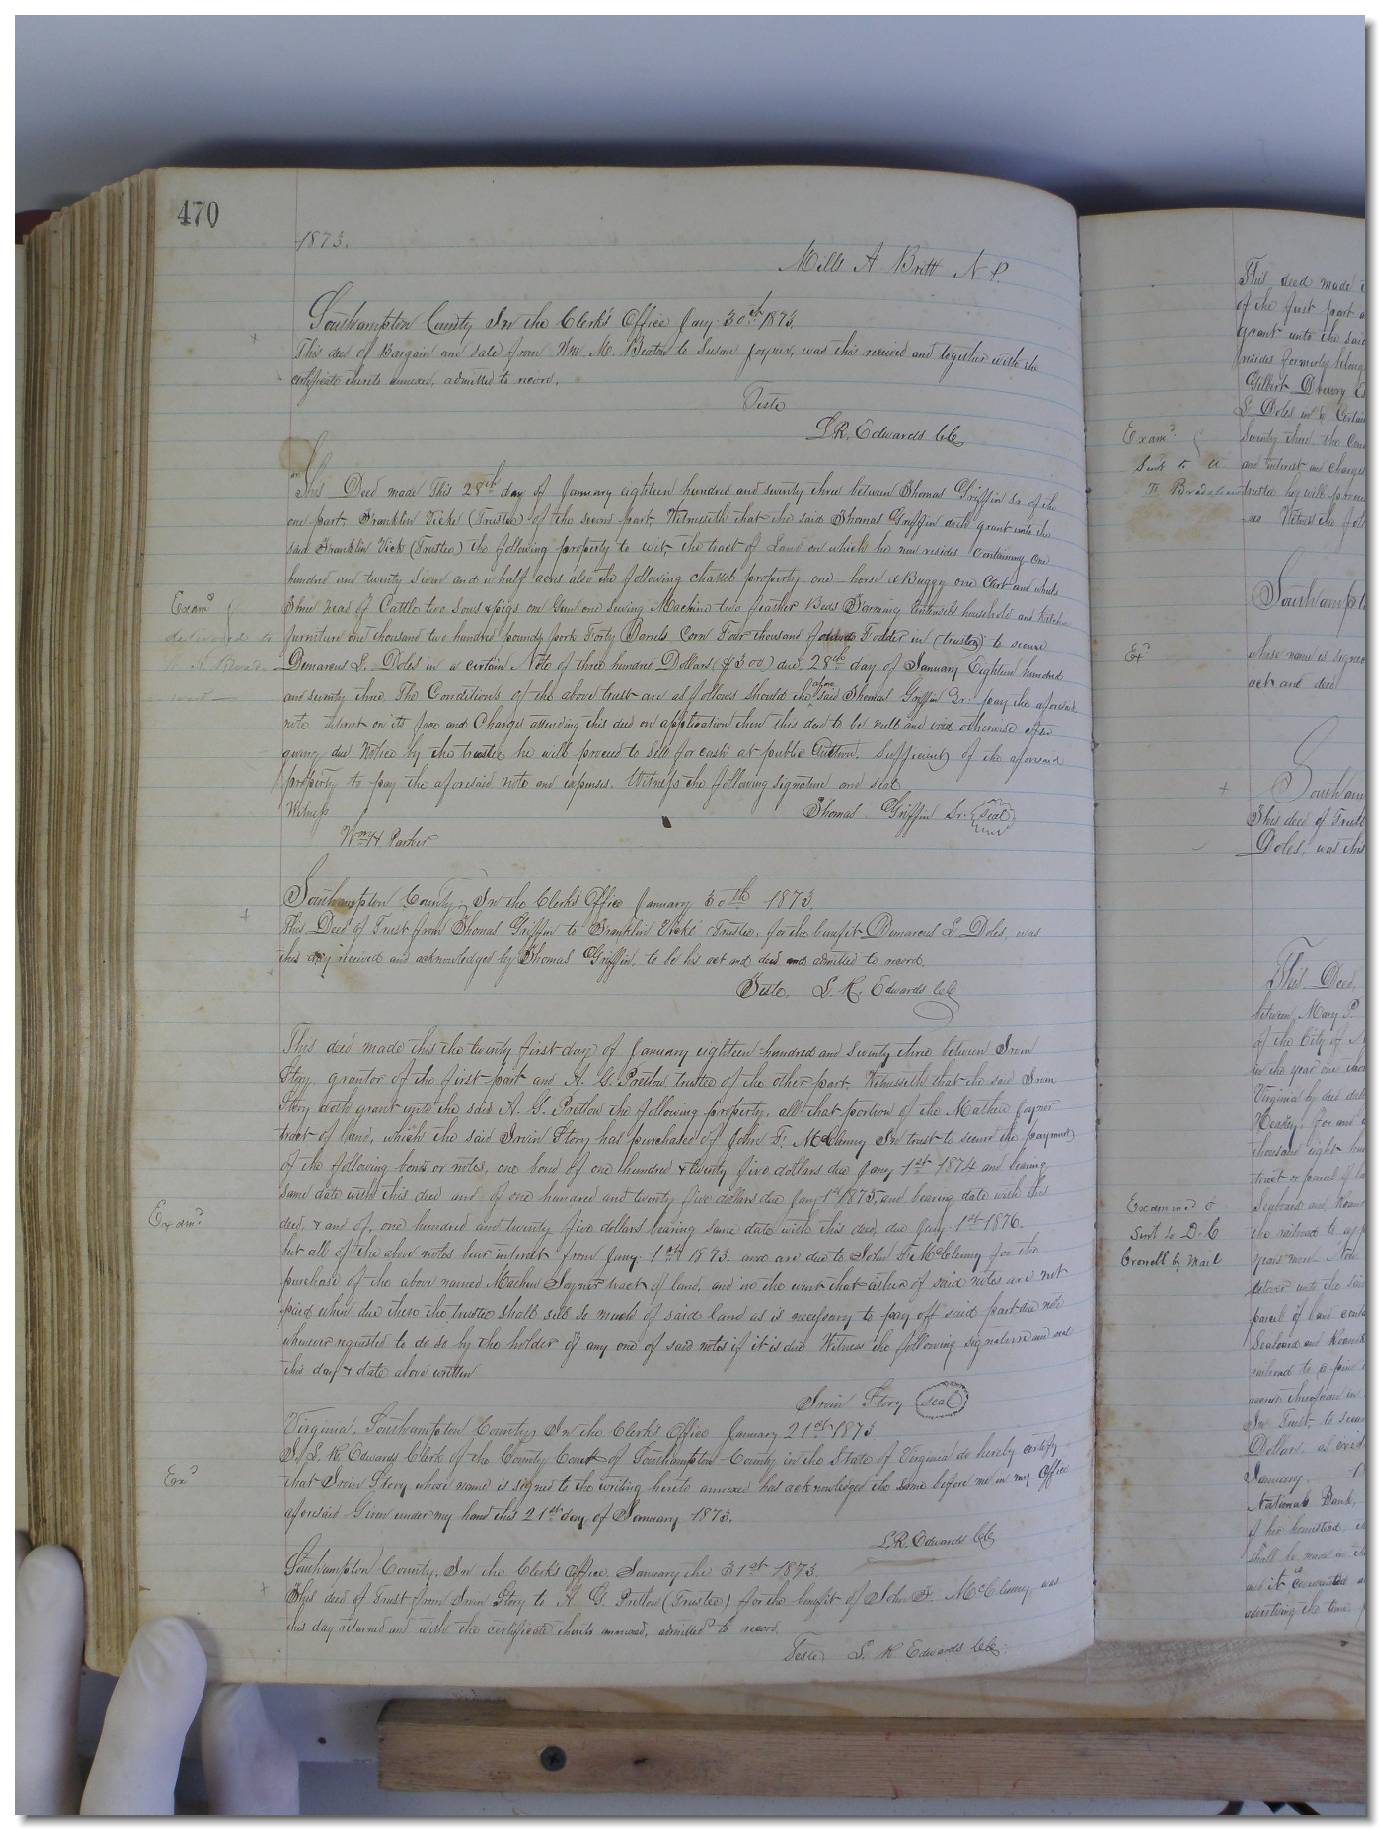 470
1873.
Mills A Britt N P.
Southampton County In the Clerk's Office Jany 30th 1873.
This deed of Bargain and sale from Wm. M. Beaton to Susan Joyner, was this received and together with the
certificate thereto annexed, admitted to record.
Teste
L.R. Edwards CC
This Deed made This 28th day of January eighteen hundred and seventy three between Thomas Griffin Sr of the
one part. Franklin Vicks (Trustee) of the second part. Witnesseth that the said Thomas Griffin doth grant unto the
said Franklin Vick (Trustee) the following property to wit the tract of Land on which he now resides Containing One
hundred and twenty seven and a half acres also the following chattel property one horse & Buggy one Cart and wheels
Three head of Cattle two sows & pigs one Gun one Sewing Machine two feather Beds Farming Utensils household and Kitchen
furniture one thousand two hundred pounds pork Forty Barrels Corn Four thousand pounds Fodder in (trusten) to secure
Demarcus L. Doles in a certain Note of three hundred Dollars ($300) due 28th day of January Eighteen hundred
and seventy three. The Conditions of the above trust are as follows should the above said Thomas Griffin Sr. pay the aforesaid
note interest on its face and Charges attending this deed on application then this deed to be null and void otherwise after
giving due Notice by the trustee he will proceed to sell for cash at public Auction. Sufficiency of the aforesaid
property to pay the aforesaid note and expenses. Witness the following signature and seal
Witness Thomas Griffin Sr. (Seal)
Wm H Parker
Southampton County, In the Clerk's Office January 30th 1873.
This Deed of Trust from Thomas Griffin to Franklin Vicks Trustee, for the benefit Demarcus L Doles, was
this day received and acknowledged by Thomas Griffin. to be his act and deed and admitted to record.
Teste. L. R. Edwards CC
This deed made this the twenty first day of January eighteen hundred and seventy three between Irvin
Story grantor of the first part and A. G. Pretlow trustee of the other part. Witnesseth that the said Irvin
Story doth grant unto the said A. G. Pretlow the following property, all that portion of the Mathew Joyner
tract of land, which the said Irvin Story has purchased of John F. McClenny In trust to secure the payment
of the following bonds or notes, one bond of one hundred & twenty five dollars due Jany 1st 1874 and bearing
same date with this deed and of one hundred and twenty five dollars due Jany 1st 1875, and bearing date with this
deed, & and of, one hundred and twenty five dollars bearing same date with this deed, due Jany 1st 1876.
but all of the above notes bear interest from Jany 1st 1873. and are due to John F. McClenny for the
purchase of the above named Mathew Joyner tract of land, and in the event that either of said notes are not
paid when due then the trustee shall sell so much of said land as is necessary to pay off said part due note
whenever requested to do so by the holder of any one of said notes if it is due Witness the following signature and seal
this day & date above written
Irvin Story (seal)
Virginia, Southampton County, In the Clerk's Office January 21st 1873
I L R Edwards Clerk of the County Court of Southampton County in the State of Virginia do hereby certify
that Irvin Story whose name is signed to the writing hereto annexed has acknowledged the same before me in my Office
aforesaid Given under my hand this 21st day of January 1873.
L.R. Edwards CC
Southampton County, In the Clerk's office January the 31st 1873.
This deed of Trust from Irvin Story to A. G. Pretlow (Trustee) for the benefit of John F. McClenny, was
this day returned and with the certificate thereto annexed, admitted to record.
Teste L. R Edwards CC
Examd
delivered to
Examd
Exd
This deed made
of the first part
grant unto the said
resides formerly belong
Gilbert Drewry
L Doles in a Certain
Seventy three the Con
and interest and charges
trustee he will proceed
Witness the fol
Examd
Sent to
Bradshaw
Southampt
Exd
whose name is signed
act and deed
Southam
This deed of Trust
Doles, was this
This Deed,
between Mary P.
of the City of
in the year one thou
Virginia by deed
thousand eight hun
tract or parcel of la
Seaboard and Roano
the railroad to
Examined &
Sent to D. C
Cronell by Mail
parcel of land
Seaboard and Roanok
railroad to a point
In Trust, to secur
Dollars, as evid
January
National Bank,
of his homestead,
shall be made in
advertising the time